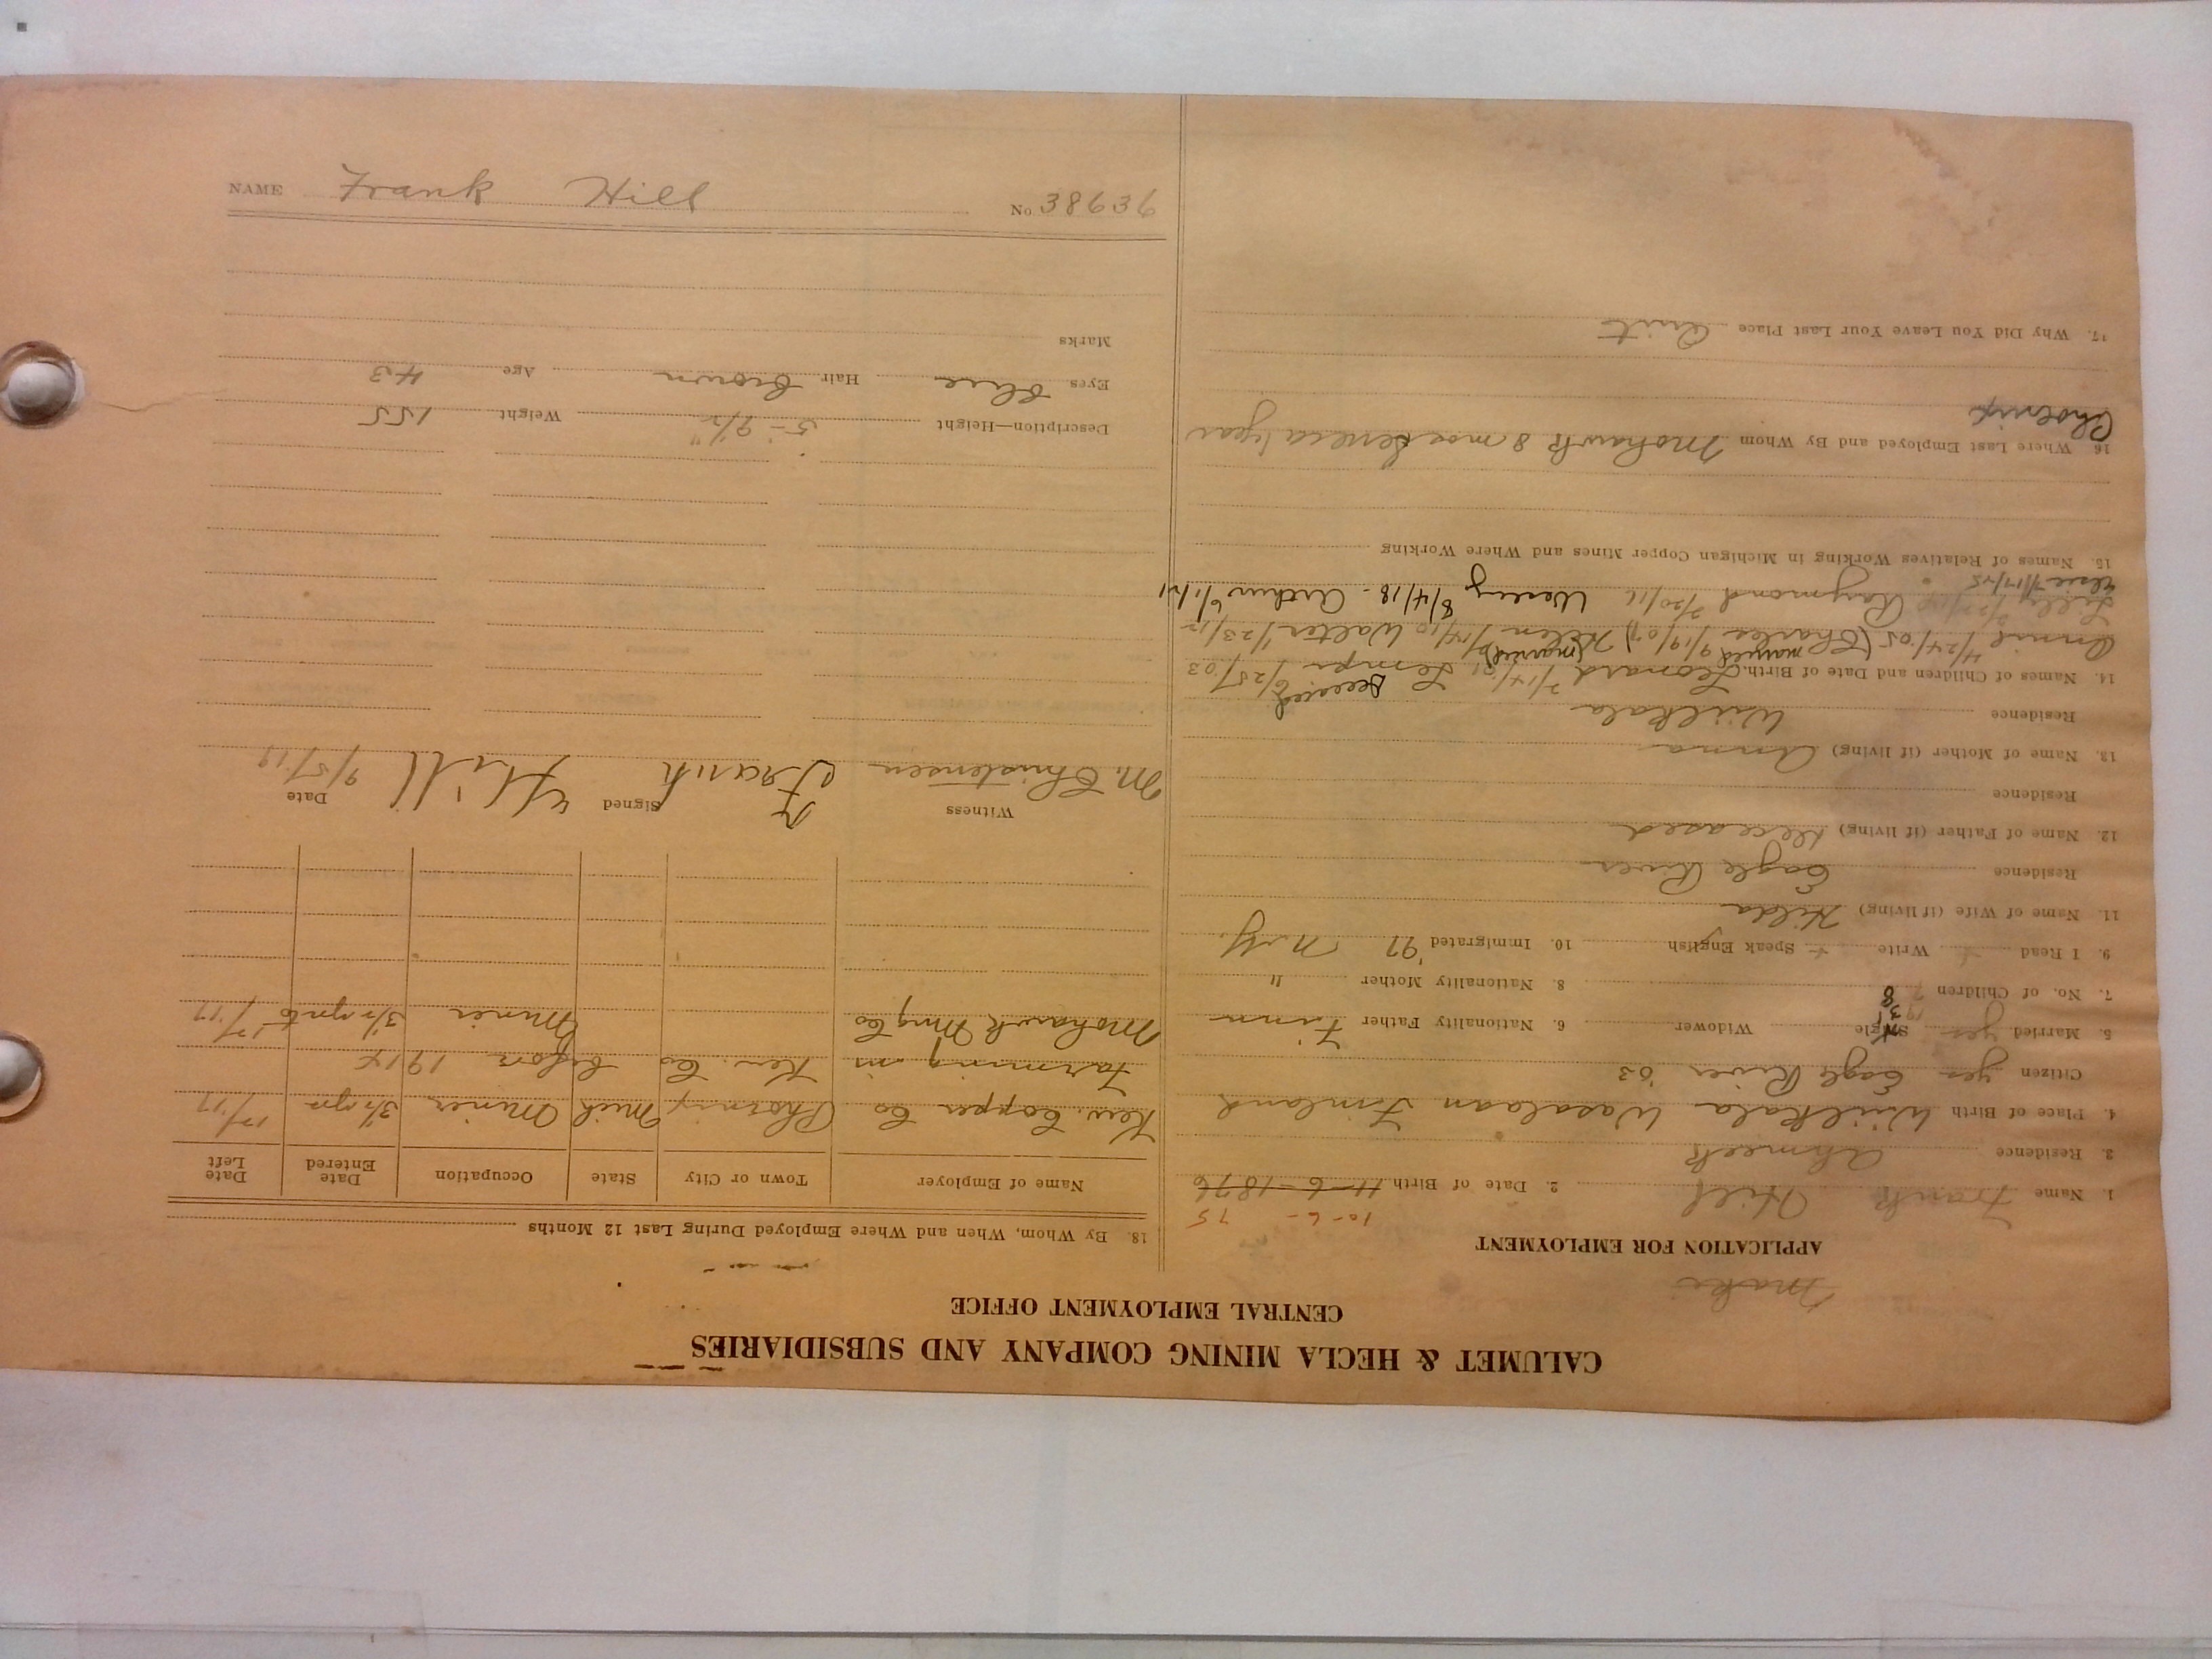 CALUMET & HECLA MINING COMPANY AND SUBSIDIARIES
CENTRAL EMPLOYMENT OFFICE
Maki
APPLICATION FOR EMPLOYMENT
10-6- 75
1. Name Frank Hill 2. Date of Birth 11-6-1876
3. Residence Ahmeek
4. Place of Birth Wiilkala Wasalaan Finland
Citizen yes Eagle River '03
5. Married yes Single Widower 6. Nationality Father Finn
7. No. of Children 7 8 8. Nationality Mother "
9. I Read Write + Speak English 10. Immigrated '97 N.Y.
11. Name of Wife (if living) Hilda
Residence Eagle River
12. Name of Father (if living) Deceased
Residence
13. Name of Mother (if living) Anna
Residence Wiilkala
14. Names of Children and Date of Birth. Leonard Lempi 6/25/03
married (married)
4/24/05 (Charles 9/19/07) Helen 1/14/10 Walter 1/23/12
Lilly Raymond 7/20/16 Wesley 8/4/18 - Arthur 6/1/21
Elsie 7/17/25
15. Names of Relatives Working in Michigan Copper Mines and Where Working
16. Where Last Employed and By Whom Mohawk 8 mos Seneca 1 year
Phoenix
17. Why Did You Leave Your Last Place Quit
18. By Whom, When and Where Employed During Last 12 Months
Name of Employer Town or City State Occupation Date Entered Date Left
Kew. Copper Co Phoenix Mich Miner 3½ yrs 17
Farming in Kew. Co before 1914
Mohawk Mng Co Miner 3½ yrs to 17
Witness Signed Date
M. Christensen Frank Hill 9/5/19
Description—Height 5-9½" Weight 155
Eyes blue Hair brown Age 43
Marks
NAME Frank Hill No 38636